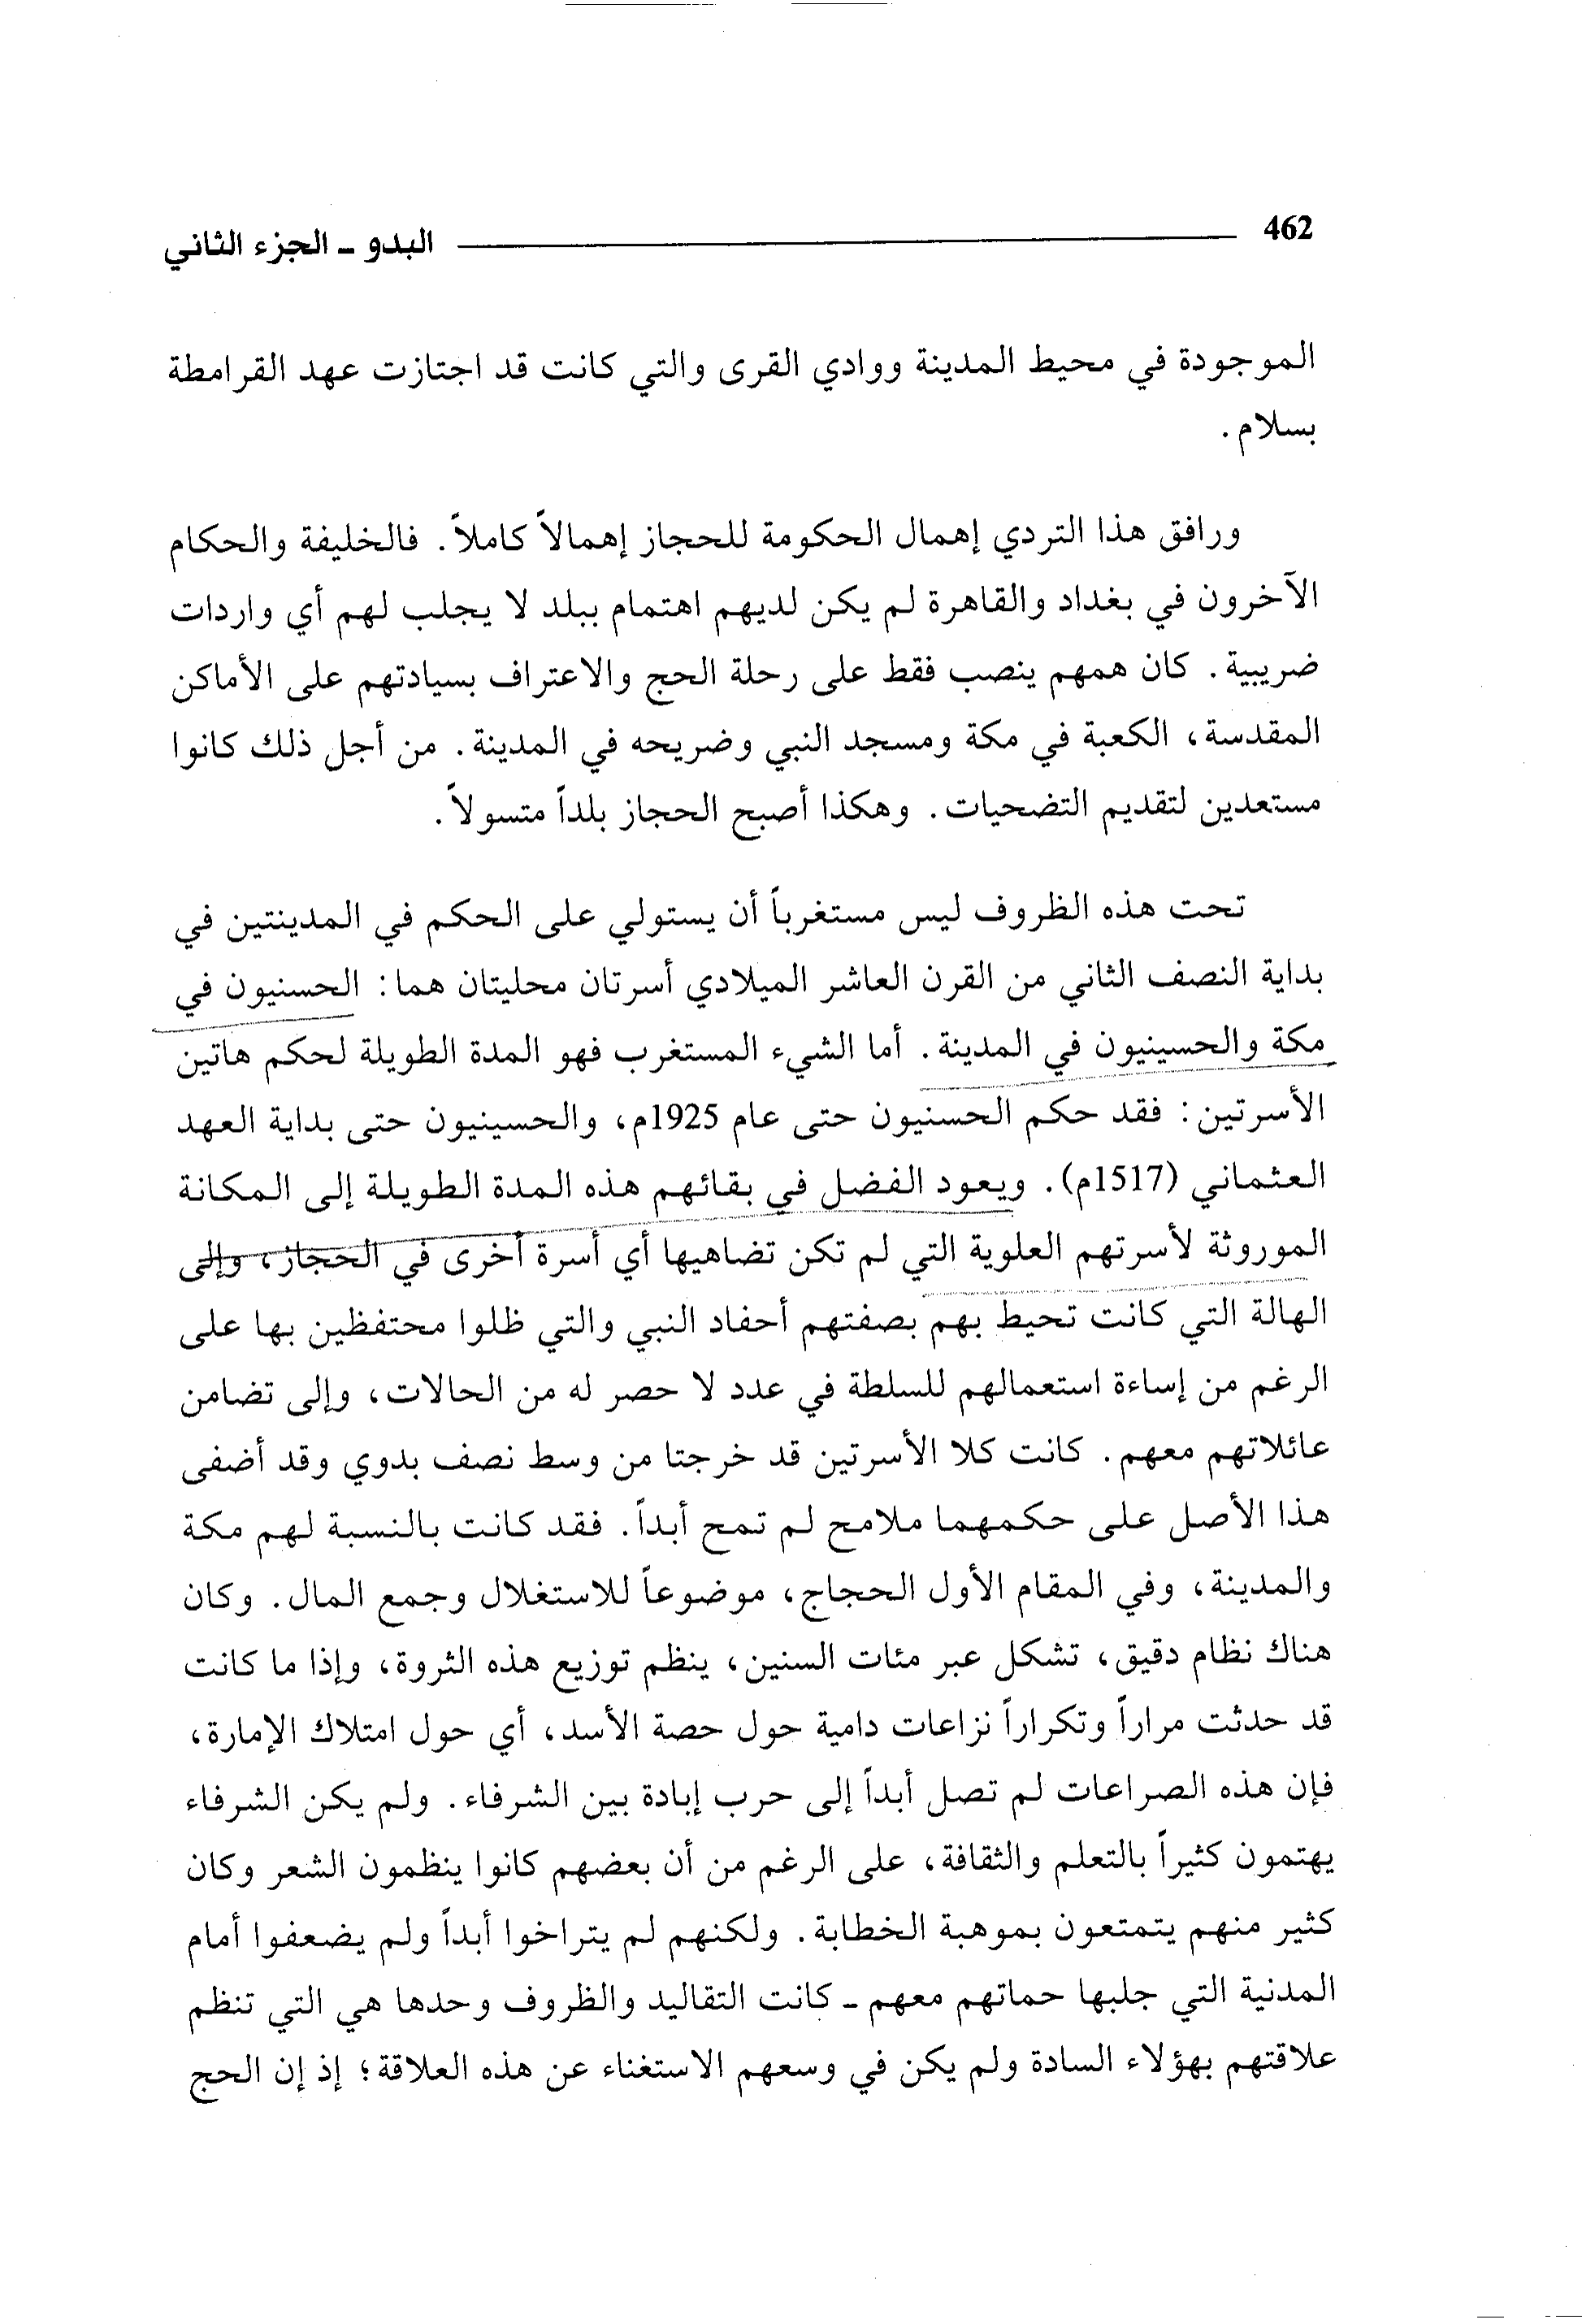 462 البدو ـ الجزء الثاني
الموجودة في محيط المدينة ووادي القرى والتي كانت قد اجتازت عهد القرامطة
بسلام.
ورافق هذا التردي إهمال الحكومة للحجاز إهمالاً كاملاً. فالخليفة والحكام
الآخرون في بغداد والقاهرة لم يكن لديهم اهتمام ببلد لا يجلب لهم أي واردات
ضريبية. كان همهم ينصب فقط على رحلة الحج والاعتراف بسيادتهم على الأماكن
المقدسة، الكعبة في مكة ومسجد النبي وضريحه في المدينة. من أجل ذلك كانوا
مستعدين لتقديم التضحيات. وهكذا أصبح الحجاز بلداً متسولاً.
تحت هذه الظروف ليس مستغرباً أن يستولي على الحكم في المدينتين في
بداية النصف الثاني من القرن العاشر الميلادي أسرتان محليتان هما: الحسنيون في
مكة والحسينيون في المدينة. أما الشيء المستغرب فهو المدة الطويلة لحكم هاتين
الأسرتين: فقد حكم الحسنيون حتى عام 1925م، والحسينيون حتى بداية العهد
العثماني (1517م). ويعود الفضل في بقائهم هذه المدة الطويلة إلى المكانة
الموروثة لأسرتهم العلوية التي لم تكن تضاهيها أي أسرة أخرى في الحجاز، وإلى
الهالة التي كانت تحيط بهم بصفتهم أحفاد النبي والتي ظلوا محتفظين بها على
الرغم من إساءة استعمالهم للسلطة في عدد لا حصر له من الحالات، وإلى تضامن
عائلاتهم معهم. كانت كلا الأسرتين قد خرجتا من وسط نصف بدوي وقد أضفى
هذا الأصل على حكمهما ملامح لم تمح أبداً. فقد كانت بالنسبة لهم مكة
والمدينة، وفي المقام الأول الحجاج، موضوعاً للاستغلال وجمع المال. وكان
هناك نظام دقيق، تشكل عبر مئات السنين، ينظم توزيع هذه الثروة، وإذا ما كانت
قد حدثت مراراً وتكراراً نزاعات دامية حول حصة الأسد، أي حول امتلاك الإمارة،
فإن هذه الصراعات لم تصل أبداً إلى حرب إبادة بين الشرفاء. ولم يكن الشرفاء
يهتمون كثيراً بالتعلم والثقافة، على الرغم من أن بعضهم كانوا ينظمون الشعر وكان
كثير منهم يتمتعون بموهبة الخطابة. ولكنهم لم يتراخوا أبداً ولم يضعفوا أمام
المدنية التي جلبها حماتهم معهم ـ كانت التقاليد والظروف وحدها هي التي تنظم
علاقتهم بهؤلاء السادة ولم يكن في وسعهم الاستغناء عن هذه العلاقة؛ إذ إن الحج